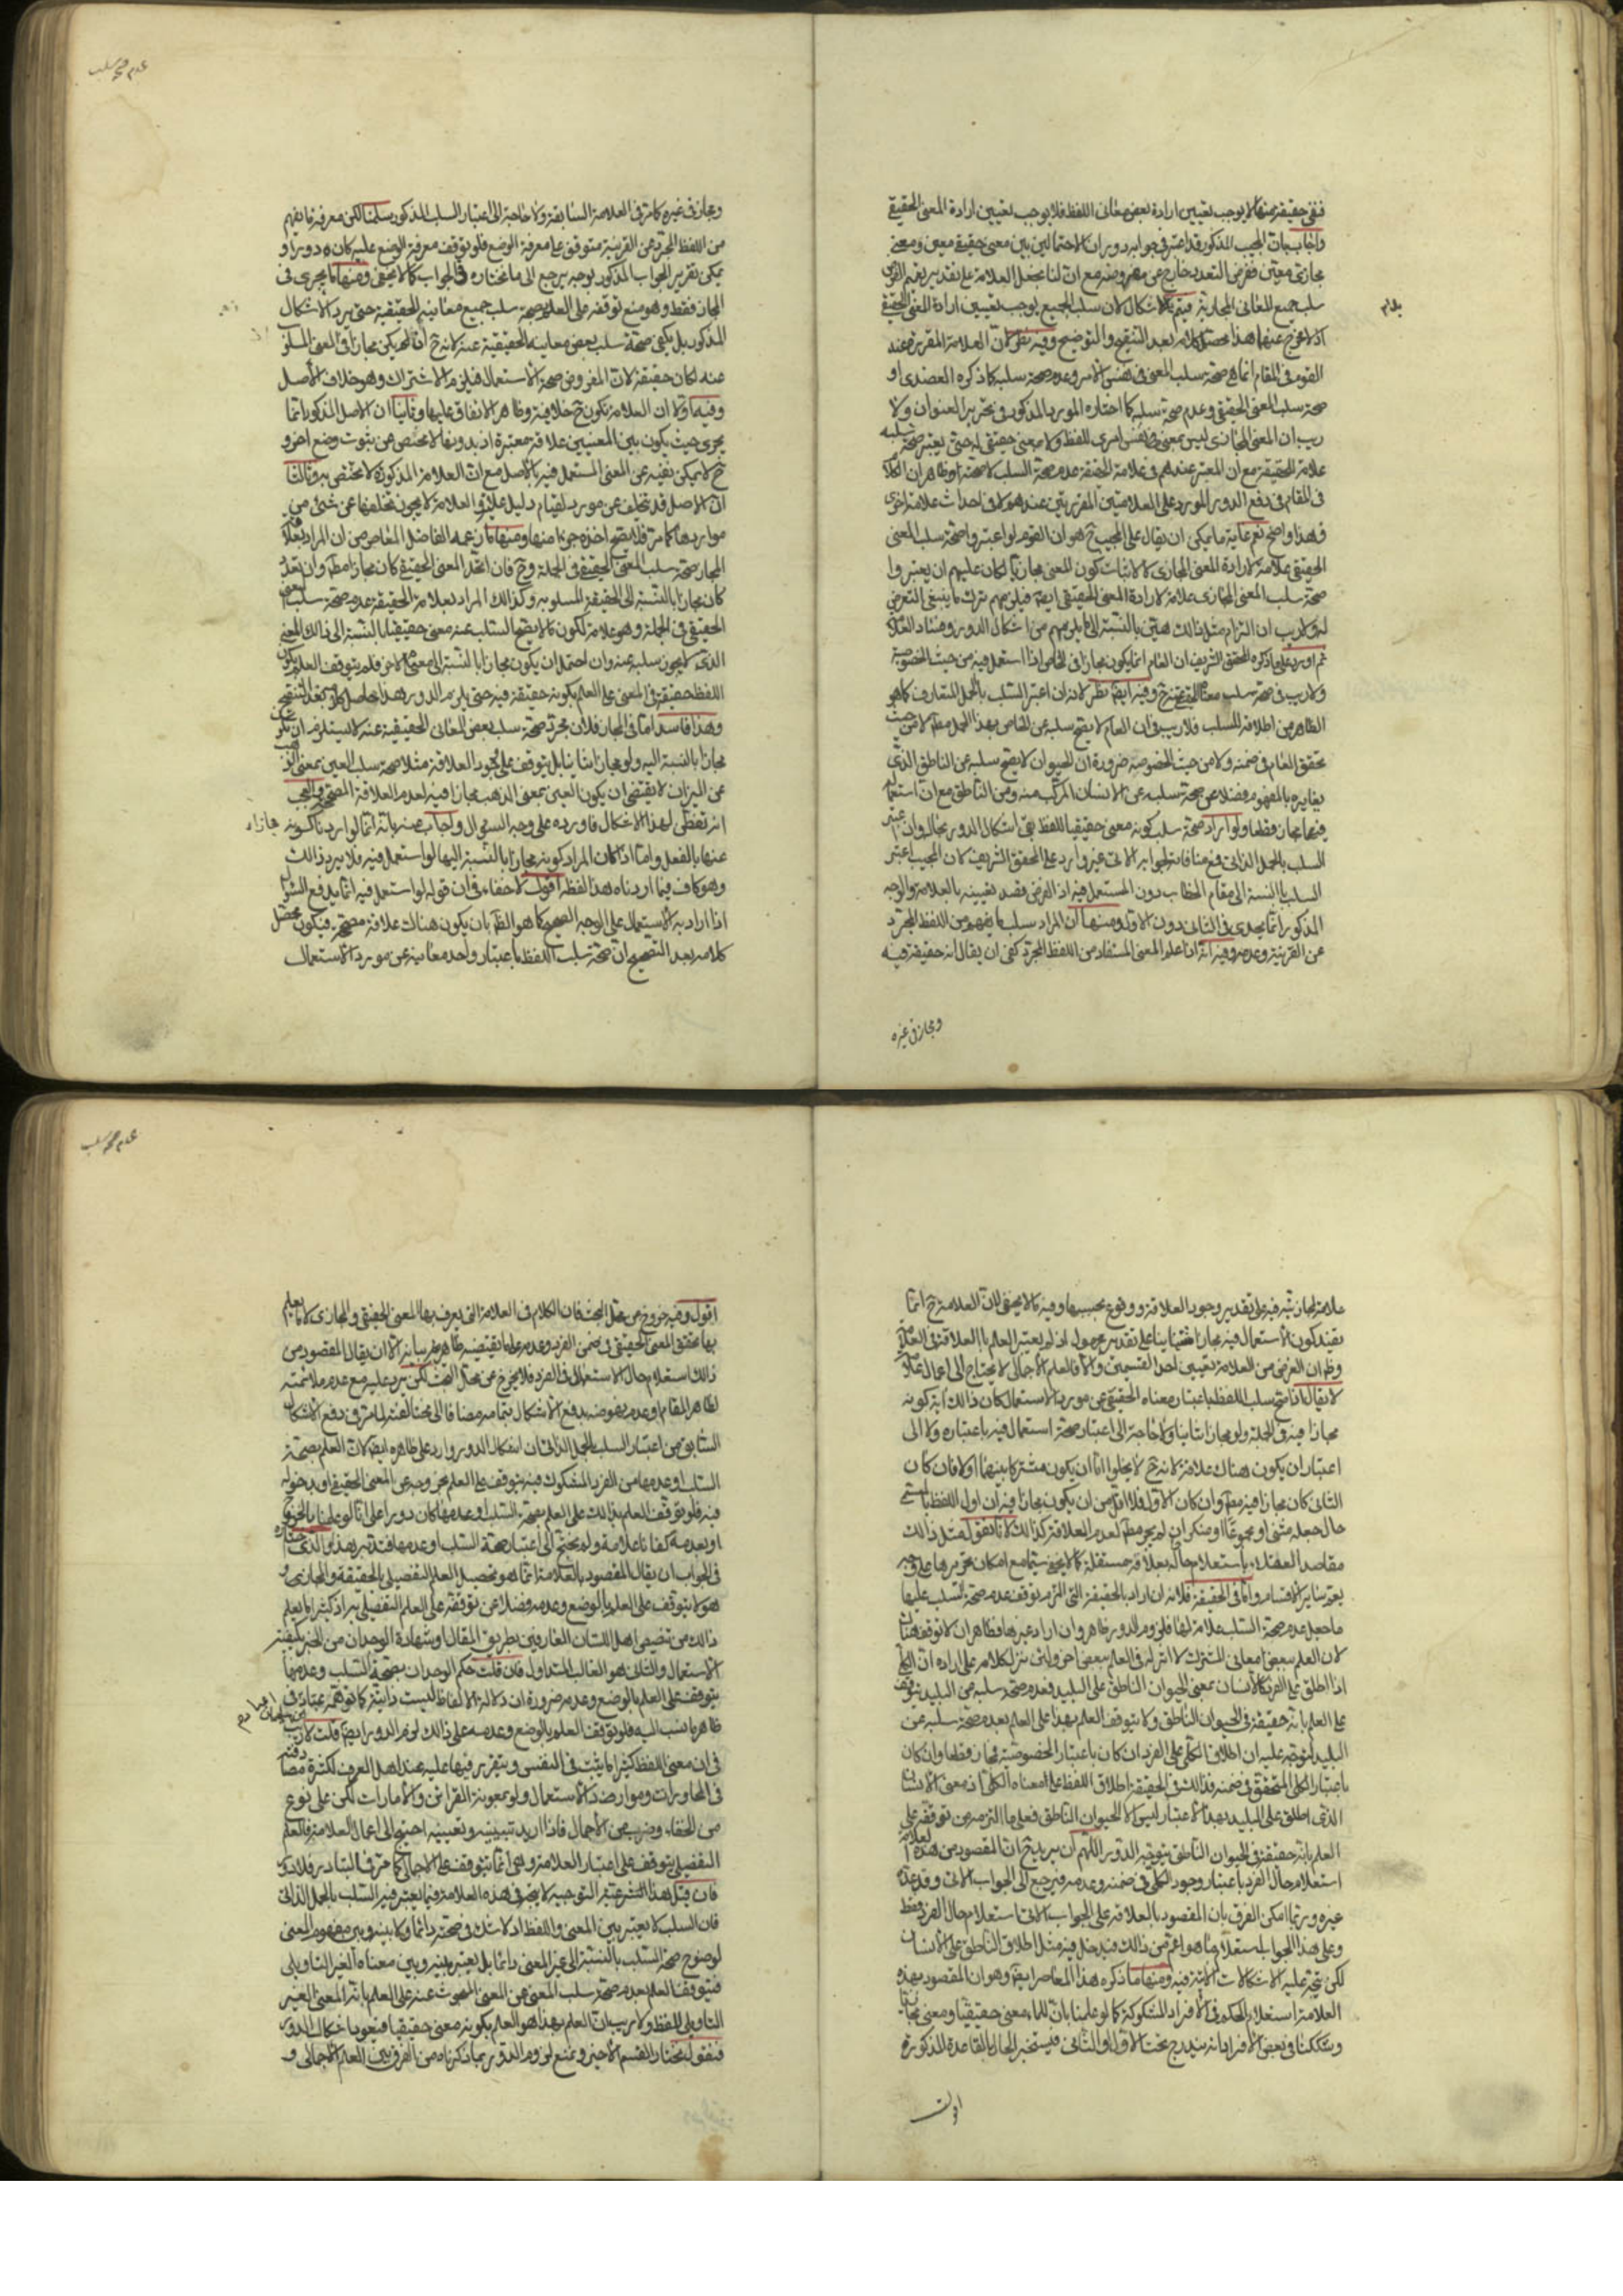 فنفى حقيقة منها لا يوجب تعيين ارادة بعض معانى اللفظ فلا يوجب تعيين ارادة المعنى الحقيقى
واجاب بان المجيب المذكور قد اعتبر فى جوابه دوران الاحتمالين بين معنى حقيقى معين ومعنى
مجازى معين ففرض التعدد خارج عن مفروضه مع ان لنا بجعل العلامة على تقدير
سلب جميع المعانى المجازية فيتم بلا اشكال لان سلب الجميع يوجب تعيين ارادة المعنى الحقيقى
اذ لا مخرج عنها هذا محصل كلامه بعد التنقيح والتوضيح وفيه نظر لان العلامة المقررة عند
القوم فى المقام انما هى صحة سلب المعنى فى نفس الامر وعدم صحة سلبه كما ذكره العضدى او
صحة سلب المعنى الحقيقى وعدم صحة سلبه كما اختاره المورد المذكور فى تحرير العنوان ولا
ريب ان المعنى المجازى ليس بمعنى نفس امرى للفظ ولا بمعنى حقيقى له حتى يعتبر صحة سلبه
علامة للحقيقة مع ان المعتبر عندهم فى علامة الحقيقة عدم صحة السلب لا صحته وظاهر ان الكلام
فى المقام فى دفع الدور المورد على العلامتين المقررتين عندهم لا فى احداث علامة اخرى
وهذا واضح نعم غاية ما يمكن ان يقال على المجيب ح هو ان القوم لو اعتبروا صحة سلب المعنى
الحقيقى علامة لارادة المعنى المجازى لا لاثبات كون المعنى مجازيا لكان عليهم ان يعتبروا
صحة سلب المعنى المجازى علامة لارادة المعنى الحقيقى ايضا فيلزمهم ترك ما ينبغى التعرض
له ولا ريب ان التزام مثل ذلك هين بالنسبة الى ما يلزمهم من اشكال الدور وفساد العلامة
ثم اورد على ما ذكره المحقق الشريف ان العام انما يكون مجازا فى الخاص اذا استعمل فيه من حيث الخصوصية
ولا ريب فى صحة سلب معناه الحقيقى عنه ح وفيه ايضا نظر لانه ان اعتبر السلب بالحمل المتعارف كما هو
الظاهر من اطلاقه للسلب فلا ريب فى ان العام لا يصح سلبه عن الخاص بهذا الحمل مطلقا لا من حيث
تحقق العام فى ضمنه ولا من حيث الخصوصية ضرورة ان الحيوان لا يصح سلبه عن الناطق الذى
يغايره بالمفهوم فضلا عن صحة سلبه عن الانسان المركب منه ومن الناطق مع ان استعماله
فيهما مجاز قطعا ولو اراد صحة سلب كونه معنى حقيقيا للفظ بقى اشكال الدور بحاله وان اعتبر
السلب بالحمل الذاتى فمع منافاته لجوابه الاتى غير وارد على المحقق الشريف لان المجيب اعتبر
السلب بالنسبة الى مقام الخطاب دون المستعمل فيه اذ الغرض قصد تعيينه بالعلامة والوجه
المذكور انما يجدى فى الثانى دون الاول ومنها ان المراد سلب ما يفهم من اللفظ المجرد
عن القرينة وعدمه وفيه انه اذا علم المعنى المستفاد من اللفظ المجرد كفى ان يقال انه حقيقة فيه
ومجاز فى غيره
عدم صحة سلب
ومجاز فى غيره كما مر فى العلامة السابقة ولا حاجة الى اعتبار السلب المذكور سلمنا لكن معرفة ما يفهم
من اللفظ المجرد عن القرينة متوقف على معرفة الوضع فلو توقف معرفة الوضع عليه كان دورا و
يمكن تقرير الجواب المذكور بوجه يرجع الى ما نختاره فى الجواب كما لا يخفى ومنها ما يجرى فى
المجاز فقط وهو منع توقفه على العلم بصحة سلب جميع معانيه الحقيقية حتى يرد الاشكال
المذكور بل يكفى صحة سلب بعض معانيه الحقيقية عنه لانه ح لو لم يكن مجازا فى المعنى المسلوب
عنه لكان حقيقة لان المفروض صحة الاستعمال فيلزم الاشتراك وهو خلاف الاصل
وفيه اولا ان العلامة تكون ح خلافية وظاهرهم الاتفاق عليها وثانيا ان الاصل المذكور انما
يجرى حيث يكون بين المعنيين علاقة معتبرة اذ بدونها لا مخلص من ثبوت وضع اخر و
ح لا يمكن نفيه عن المعنى المستعمل فيه بالاصل مع ان العلامة المذكورة لا تختص به وثالثا
ان الاصل قد يتخلف عن مورده لقيام دليل عليه والعلامة لا يجوز تخلفها عن شئ من
مواردها كما مر فلا يصح اخذه جزءا منها ومنها ما زعمه الفاضل المعاصر من ان المراد بعلامة
المجاز صحة سلب المعنى الحقيقى فى الجملة وح فان اتحد المعنى الحقيقى كان مجازا مطلقا وان تعدد
كان مجازا بالنسبة الى الحقيقة المسلوبة وكذلك المراد بعلامة الحقيقة عدم صحة سلب المعنى
الحقيقى فى الجملة وهو علامة لكون ما لا يصح السلب عنه معنى حقيقيا بالنسبة الى ذلك المعنى
الذى لا يجوز سلبه عنه وان احتمل ان يكون مجازا بالنسبة الى معنى اخر فلم يتوقف العلم بكون
اللفظ حقيقة فى المعنى على العلم بكونه حقيقة فيه حتى يلزم الدور هذا حاصل كلامه بعد التنقيح
وهذا فاسد اما فى المجاز فلان مجرد صحة سلب بعض المعانى الحقيقية عنه لا يستلزم ان يكون
مجازا بالنسبة اليه ولو مجازا شأنيا بل يتوقف على وجود العلاقة مثلا صحة سلب العين بمعنى الذهب
عن الميزان لا يقتضى ان يكون العين بمعنى الذهب مجازا فيه لعدم العلاقة المصححة والعجب
انه تفطن لهذا الاشكال فاورده على وجه السؤال واجاب عنه بانه انما لو اردنا كونه مجازا
عنها بالفعل واما اذا كان المراد كونه مجازا بالنسبة اليها لو استعمل فيه فلا يرد ذلك
وهو كاف فيما اردناه هذا لفظه اقول لا خفاء فى ان قوله لو استعمل فيه انما يدفع السؤال
اذا اراد به الاستعمال على الوجه الصحيح كما هو الظاهر بان يكون هناك علاقة مصححة فيكون محصل
كلامه بعد التصحيح ان صحة سلب اللفظ باعتبار واحد معانيه عن مورد الاستعمال
علامة لمجازيته فيه على تقدير وجود العلاقة ووقوع بحسبها وفيه ما لا يخفى لان العلامة ح انما
يفيد كون الاستعمال فيه مجازا شأنيا على تقدير مجهول اذ لم يعتبر العلم بالعلاقة فى العلامة
وظاهر ان الغرض من العلامة تعيين احد القسمين والا فالعلم الاجمالى لا يحتاج الى اعمال علامة
لا يقال اذا صح سلب اللفظ باعتبار معناه الحقيقى عن مورد الاستعمال كان ذلك اية كونه
مجازا فيه فى الجملة ولو مجازا شأنيا ولا حاجة الى اعتبار صحة استعمال فيه باعتباره ولا الى
اعتبار ان يكون هناك علاقة لانه ح لا يخلو اما ان يكون مشتركا بينهما او لا فان كان
الثانى كان مجازا فيه مطلقا وان كان الاول فلا اقل من ان يكون مجازا فيه ان اول اللفظ بالمسمى
حال جعله مثنى او مجموعا او منكرا ان لم يجز مطلقا لعدم العلاقة كذلك لانا نقول مثل ذلك
مقاصد العقلاء باستعلام حاله بعلامة مستقلة كما لا يخفى سيما مع امكان تحريرها على وجه
يعم سائر الاقسام واما فى الحقيقة فلانه ان اراد بالحقيقة التى التزم توقف عدم صحة السلب عليها
ما جعل عدم صحة السلب علامة لها فلزوم الدور ظاهر وان اراد غيرها فظاهر ان لا توقف هناك
لان العلم ببعض معانى المشترك لا اثر له فى العلم ببعض اخر ولئن نزل كلامه على ارادة ان الكلى
اذا اطلق على الفرد كالانسان بمعنى الحيوان الناطق على البليد فعدم صحة سلبه عن البليد يتوقف
على العلم بانه حقيقة فى الحيوان الناطق ولا يتوقف العلم بهذا على العلم بعدم صحة سلبه عن
البليد لتوجه عليه ان اطلاق الكلى على الفرد ان كان باعتبار الخصوصية فمجاز قطعا وان كان
باعتبار الكلى المتحقق فى ضمنه فذلك فى الحقيقة اطلاق اللفظ على معناه الكلى اذ معنى الانسان
الذى اطلق على البليد بهذا الاعتبار ليس الا الحيوان الناطق فعلى ما التزمه من توقفه على
العلم بانه حقيقة فى الحيوان الناطق يتوجه الدور اللهم ان يريد ح ان المقصود من هذه العلامة
استعلام حال الفرد باعتبار وجود الكلى فى ضمنه وعدمه فيرجع الى الجواب الاتى وقد عده
غيره وربما امكن الفرق بان المقصود بالعلاقة على الجواب الاتى استعلام حال الفرد فقط
وعلى هذا الجواب استعلام ما هو اعم من ذلك فيدخل فيه مثل اطلاق الناطق على الانسان
لكن يتجه عليه الاشكالات الاتية فيه ومنها ما ذكره هذا المعاصر ايضا وهو ان المقصود بهذه
العلامة استعلام الحكم فى الافراد المشكوكة كما لو علمنا بان للماء معنى حقيقيا ومعنى مجازيا
وشككنا فى بعض الافراد انه يندرج تحت الاول او الثانى فيستخبر الحال بالقاعدة المذكورة
اقول
عدم صحة سلب
اقول وفيه خروج من محل البحث فان الكلام فى العلامة التى يعرف بها المعنى الحقيقى والمجازى لا ما يعلم
بها تحقق المعنى الحقيقى فى ضمن الفرد وعدمه على ما يقتضيه ظاهر بيانه الا ان يقال المقصود من
ذلك استعلام حال الاستعمال فى الفرد فلا يخرج عن محل البحث لكن يرد عليه مع عدم ملائمته
لظاهر المقام وعدم نهوضه بدفع الاشكال بتمامه مضافا الى مخالفته لما مر فى دفع الاشكال
السابق من اعتبار السلب بالحمل الذاتى ان اشكال الدور وارد على ظاهره ايضا لان العلم بصحة
السلب وعدمها من الفرد المشكوك فيه يتوقف على العلم بخروجه عن المعنى الحقيقى او بدخوله
فيه فلو توقف العلم بذلك على العلم بصحة السلب وعدمها كان دورا على انا لو علمنا بالخروج
او بعدمه كفانا علامة ولم نحتج الى اعتبار صحة السلب وعدمها فتدبر هذا والذى نختاره
فى الجواب ان يقال المقصود بالعلامة انما هو تحصيل العلم التفصيلى بالحقيقة والمجاز و
هو لا يتوقف على العلم بالوضع وعدمه فضلا عن توقفه على العلم التفصيلى به اذ كثيرا ما يعلم
ذلك من تنصيص اهل اللسان العارفين بطريق المقال او شهادة الوجدان من الخبير بكيفية
الاستعمال والثانى هو الغالب المتداول فان قلت حكم الوجدان بصحة السلب وعدمها
يتوقف على العلم بالوضع وعدمه ضرورة ان دلالة الالفاظ ليست ذاتية كما توهمه عباد فى
ظاهر ما نسب اليه فلو توقف العلم بالوضع وعدمه على ذلك لزم الدور ايضا قلت لا ريب
فى ان معنى اللفظ كثيرا ما يثبت فى النفس ويتقرر فيها عليه عند اهل العرف لكثرة مصادفته
فى المحاورات وموارد الاستعمال ولو بمعونة القرائن والامارات لكن على نوع
من الخفاء وضرب من الاجمال فاذا اريد تبيينه وتعيينه احتيج الى اعمال العلامة فالعلم
التفصيلى يتوقف على اعتبار العلامة وهى انما تتوقف على الاجمالى كما مر فى التبادر فلا دور
فان قيل هذا التوجيه لا يجرى فى هذه العلامة فيما يعتبر فيه السلب بالحمل الذاتى
فان السلب لا يعتبر بين المعنى واللفظ اذ لا شك فى صحته دائما ولا بينه وبين مفهوم المعنى
لوضوح صحة السلب بالنسبة الى غير المعنى دائما بل يعتبر بينه وبين معناه الغير التاويلى
فيتوقف العلم بعدم صحة سلب المعنى عن المعنى المبحوث عنه على العلم بانه المعنى الغير
التاويلى للفظ ولا ريب ان العلم بهذا هو العلم بكونه معنى حقيقيا فيعود اشكال الدور
فنقول نختار القسم الاخير ونمنع لزوم الدور بما ذكرناه من الفرق بين العلم الاجمالى و